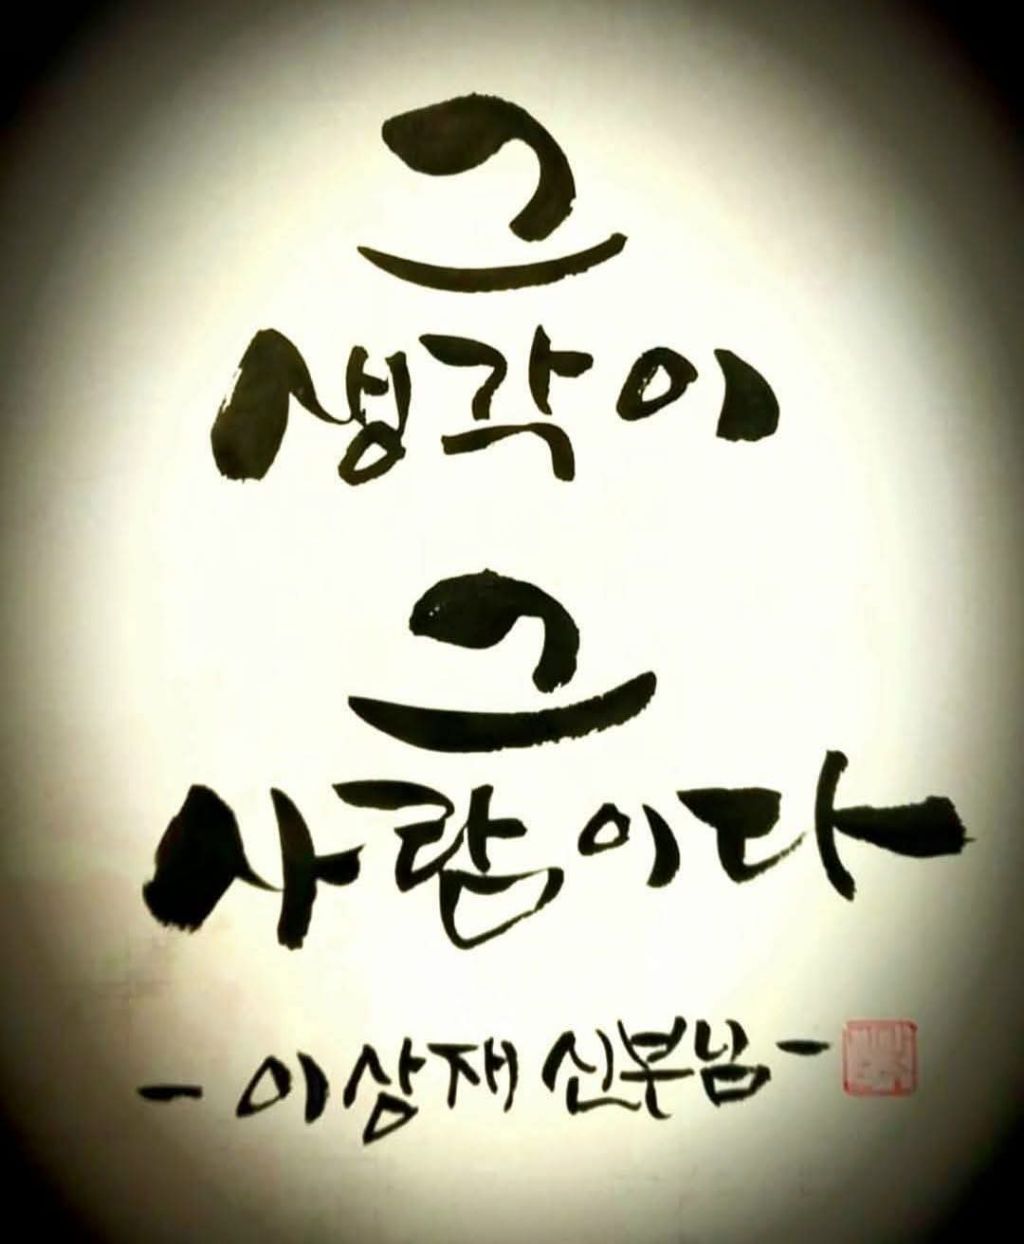 그
생각이
그
사람이다
- 이상재 신부님 -